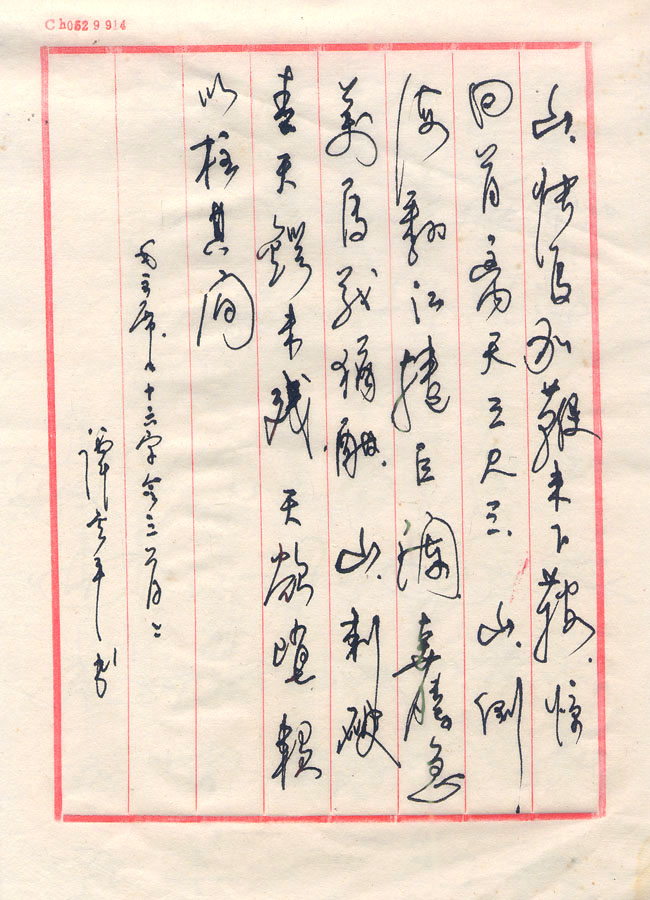 Ch0529914
山.快马加鞭未下鞍.惊
回首离天三尺三.山.倒
海翻江捲巨澜奔腾急
萬马战犹酣.山.刺破
青天锷未残天欲堕赖
以柱其间
毛主席十六字令三首
谭平书